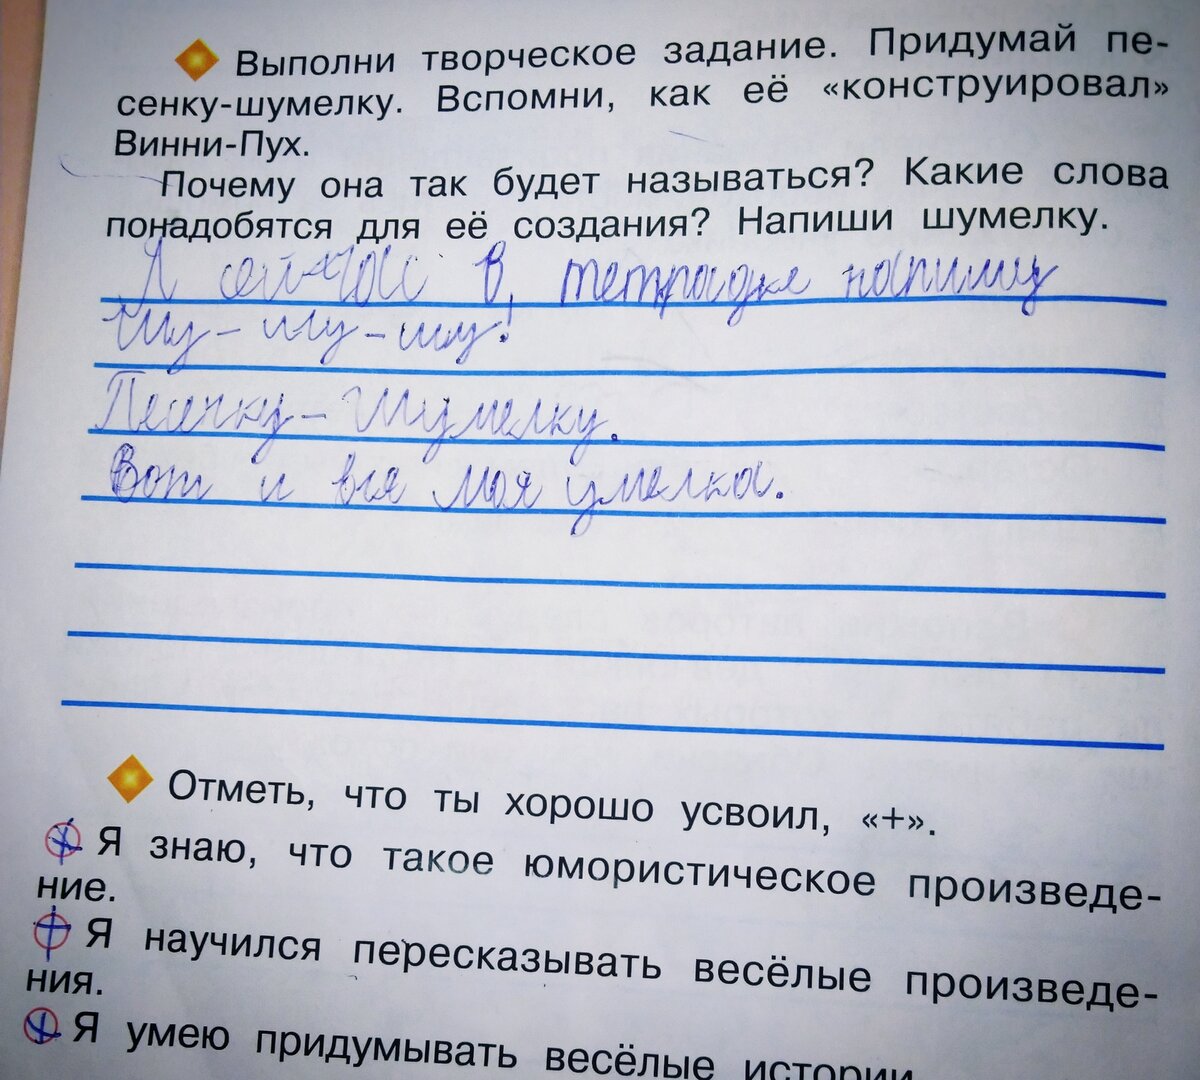 Выполни творческое задание. Придумай пе-
сенку-шумелку. Вспомни, как её «конструировал»
Винни-Пух.
Почему она так будет называться? Какие слова
понадобятся для её создания? Напиши шумелку.
Я сейчас в тетрадке напишу
Шу-шу-шу!
Песенку-Шумелку.
Вот и вся моя умелка.
Отметь, что ты хорошо усвоил, «+».
+ Я знаю, что такое юмористическое произведе-
ние.
+ Я научился пересказывать весёлые произведе-
ния.
+ Я умею придумывать весёлые истории